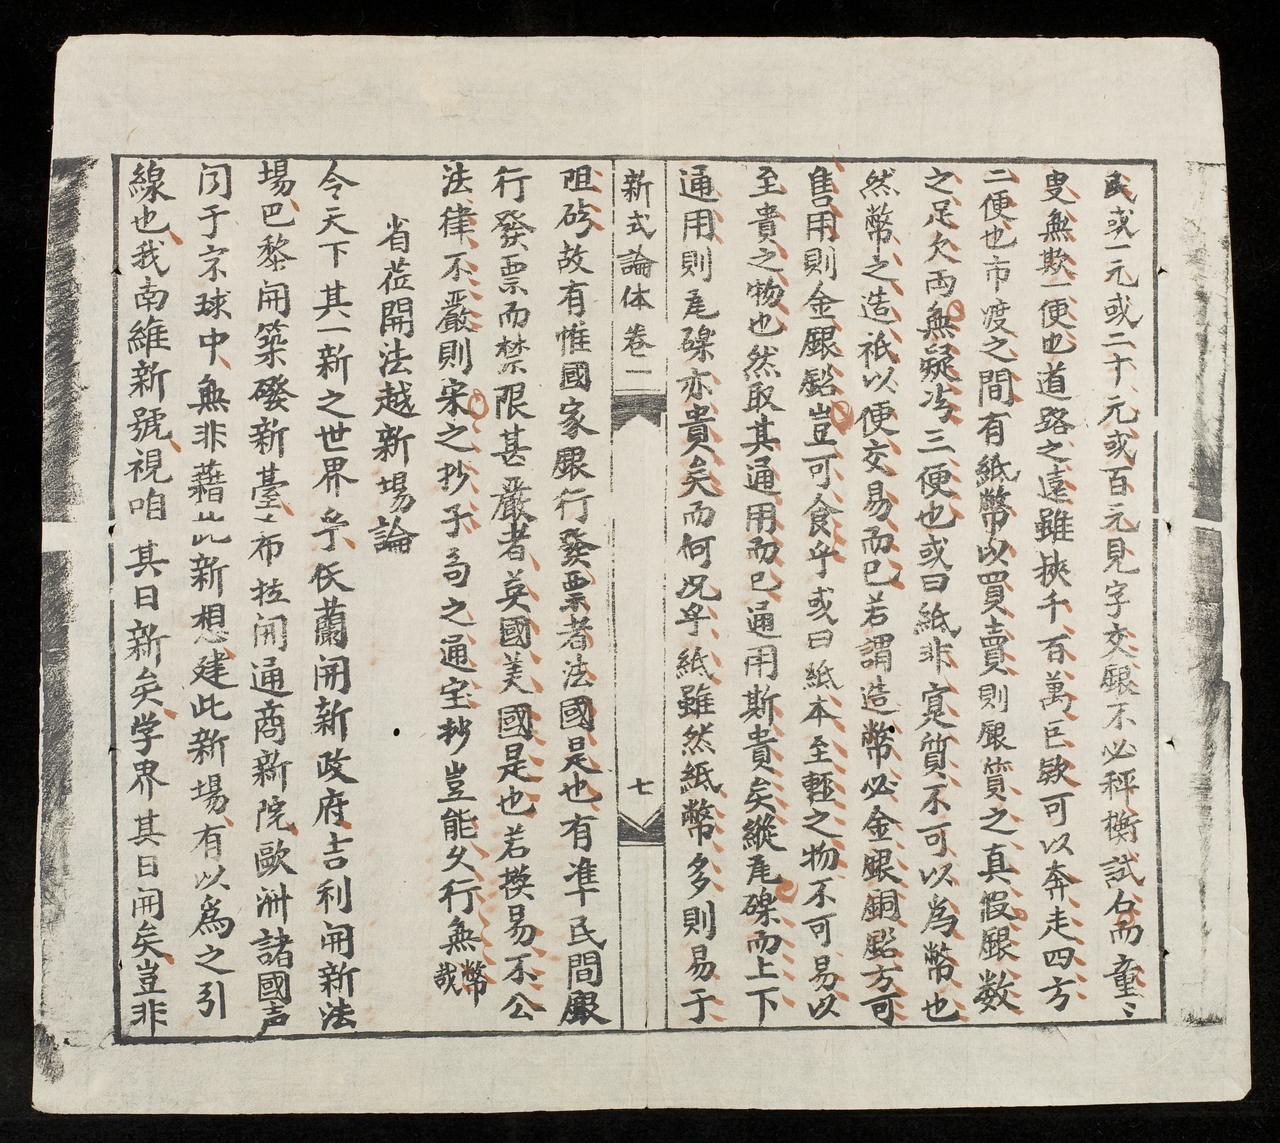 民或一元或二十元或百元見字交銀不必秤衡試石而童〻
叟無欺一便也道路之遠雖挾千百萬巨欵可以奔走四方
二便也市渡之間有紙幣以買賣則銀質之真假銀数
之足欠両無疑冯三便也或曰紙非寔質不可以為幣也
然幣之造祇以便交易而巳若謂造幣必金銀銅鉛方可
售用則金銀鉛豈可食乎或曰紙本至輕之物不可易以
至貴之物也然取其通用而巳通用斯貴矣縱尾磲而上下
通用則尾磲亦貴矣而何况乎紙雖然紙幣多則易于
新式論体卷一
七
阻砂故有惟國家銀行發票者法國是也有準民間銀
行發票而禁限甚嚴者英國美國是也若模易不公
法律不嚴則宋之抄子㕥之通宝抄豈能久行無幣哉
省莅開法越新場論
今天下其一新之世界乎仸蘭開新政府吉利開新法
場巴黎開築礮新臺士布拉開通商新院歐洲諸國声
闻于京球中無非藉此新想建此新場有以為之引
線也我南維新號視咱其日新矣学界其日開矣豈非